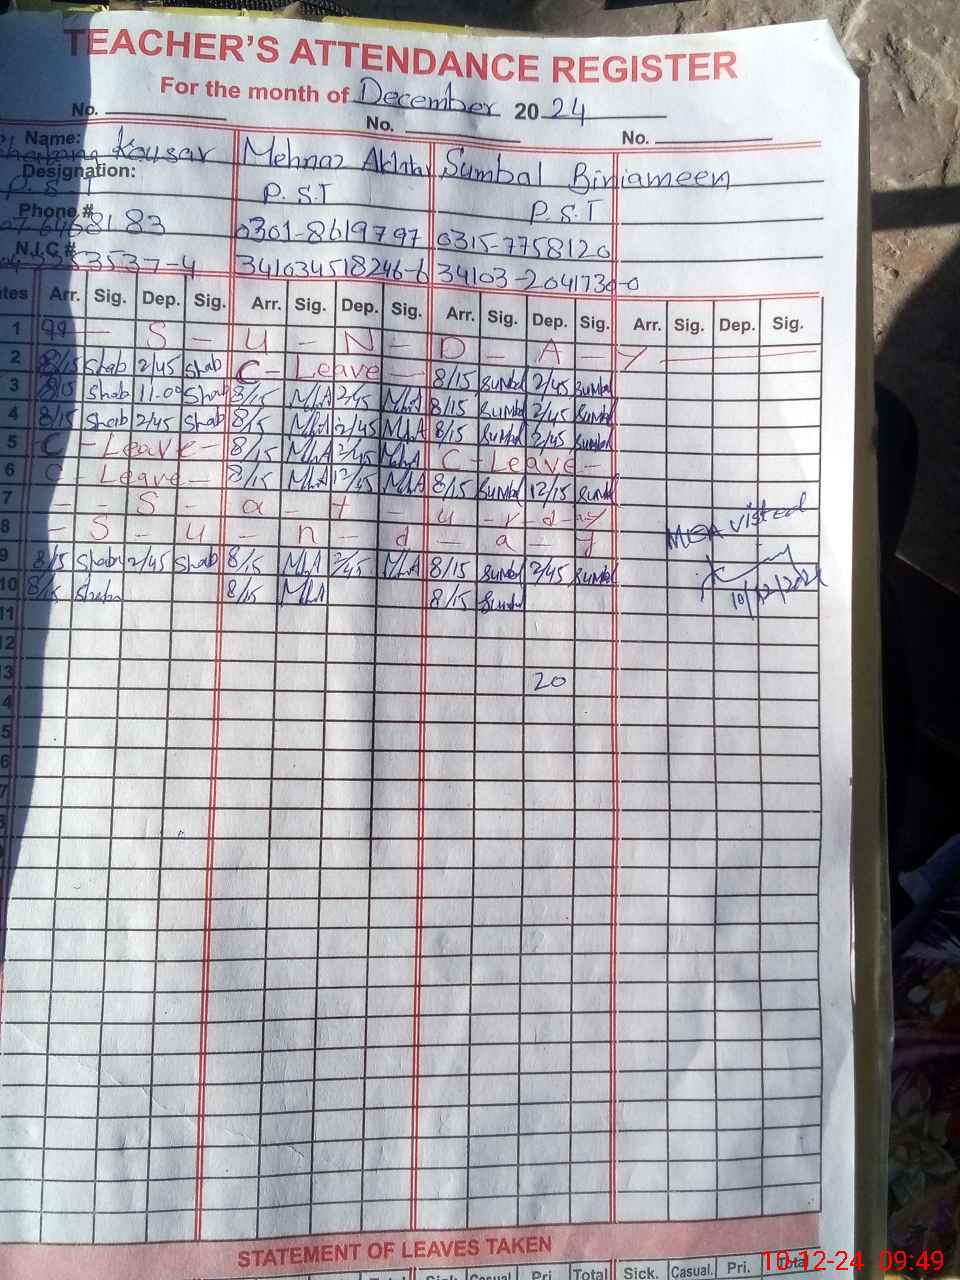 TEACHER'S ATTENDANCE REGISTER
For the month of December 2024
No. No. No.
Name: Kousar Mehnaz Akhtar Sumbal Biniameen
Designation: P.S.T P.S.T P.S.T
Phone # 83 0301-8619797 0315-7758120
N.I.C # 3537-4 341034518246-6 34103-2041730-0
Arr. Sig. Dep. Sig. Arr. Sig. Dep. Sig. Arr. Sig. Dep. Sig. Arr. Sig. Dep. Sig.
1 - S - U - N - D - A - Y
2 8/15 Shab 2/45 Shab C - Leave - 8/15 Sumbal 2/45 Sumbal
3 8/15 Shab 11.00 Shab 8/15 MLA 2/45 MLA 8/15 Sumbal 2/45 Sumbal
4 8/15 Shab 2/45 Shab 8/15 MLA 2/45 MLA 8/15 Sumbal 2/45 Sumbal
5 C - Leave - 8/15 MLA 2/45 MLA C - Leave -
6 C - Leave - 8/15 MLA 12/15 MLA 8/15 Sumbal 12/15 Sumbal
7 - - S - a - t - u - r - d - ay
8 - S - u - n - d - a - y
MEA visted
9 8/15 Shab 2/45 Shab 8/15 MLA 2/45 MLA 8/15 Sumbal 2/45 Sumbal
10/12/2024
10 8/15 Shab 8/15 MLA 8/15 Sumbal
11
12
3 20
4
5
6
7
STATEMENT OF LEAVES TAKEN
Total Sick Casual Pri. Total Sick. Casual. Pri. Total
10-12-24 09:49